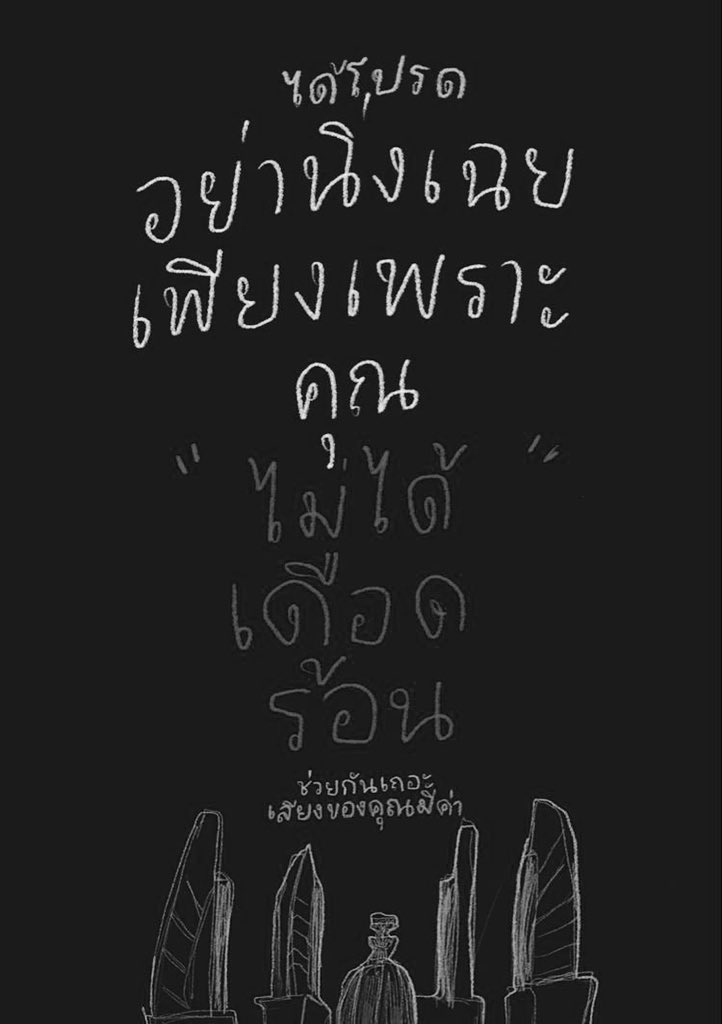 ได้โปรด
อย่านิ่งเฉย
เพียงเพราะ
คุณ
"ไม่ได้"
เดือด
ร้อน
ช่วยกันเถอะ
เสียงของคุณมีค่า